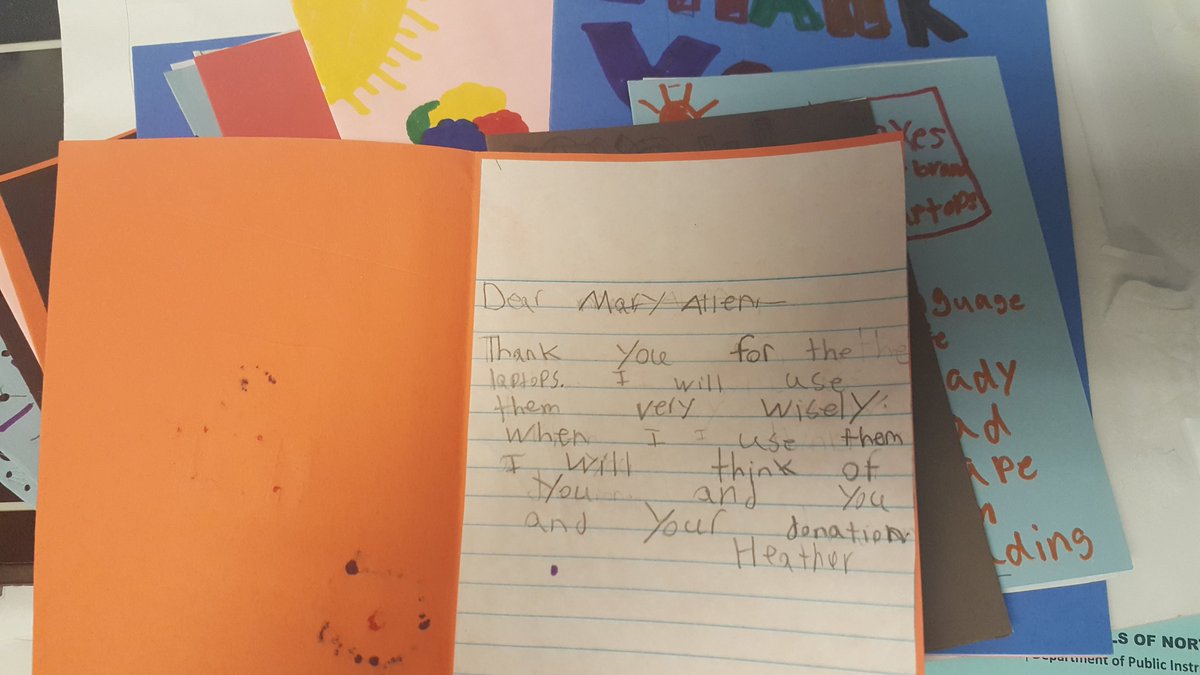 THANK
Yo
xes
bran
aptops
guage
ady
ad
ape
ding
Dear Mary Allen
Thank you for the the
laptops. I will use
them very wisely.
When I I use them
I will think of
you and you
and your donation
Heather
LS OF NOR
Department of Public Instr